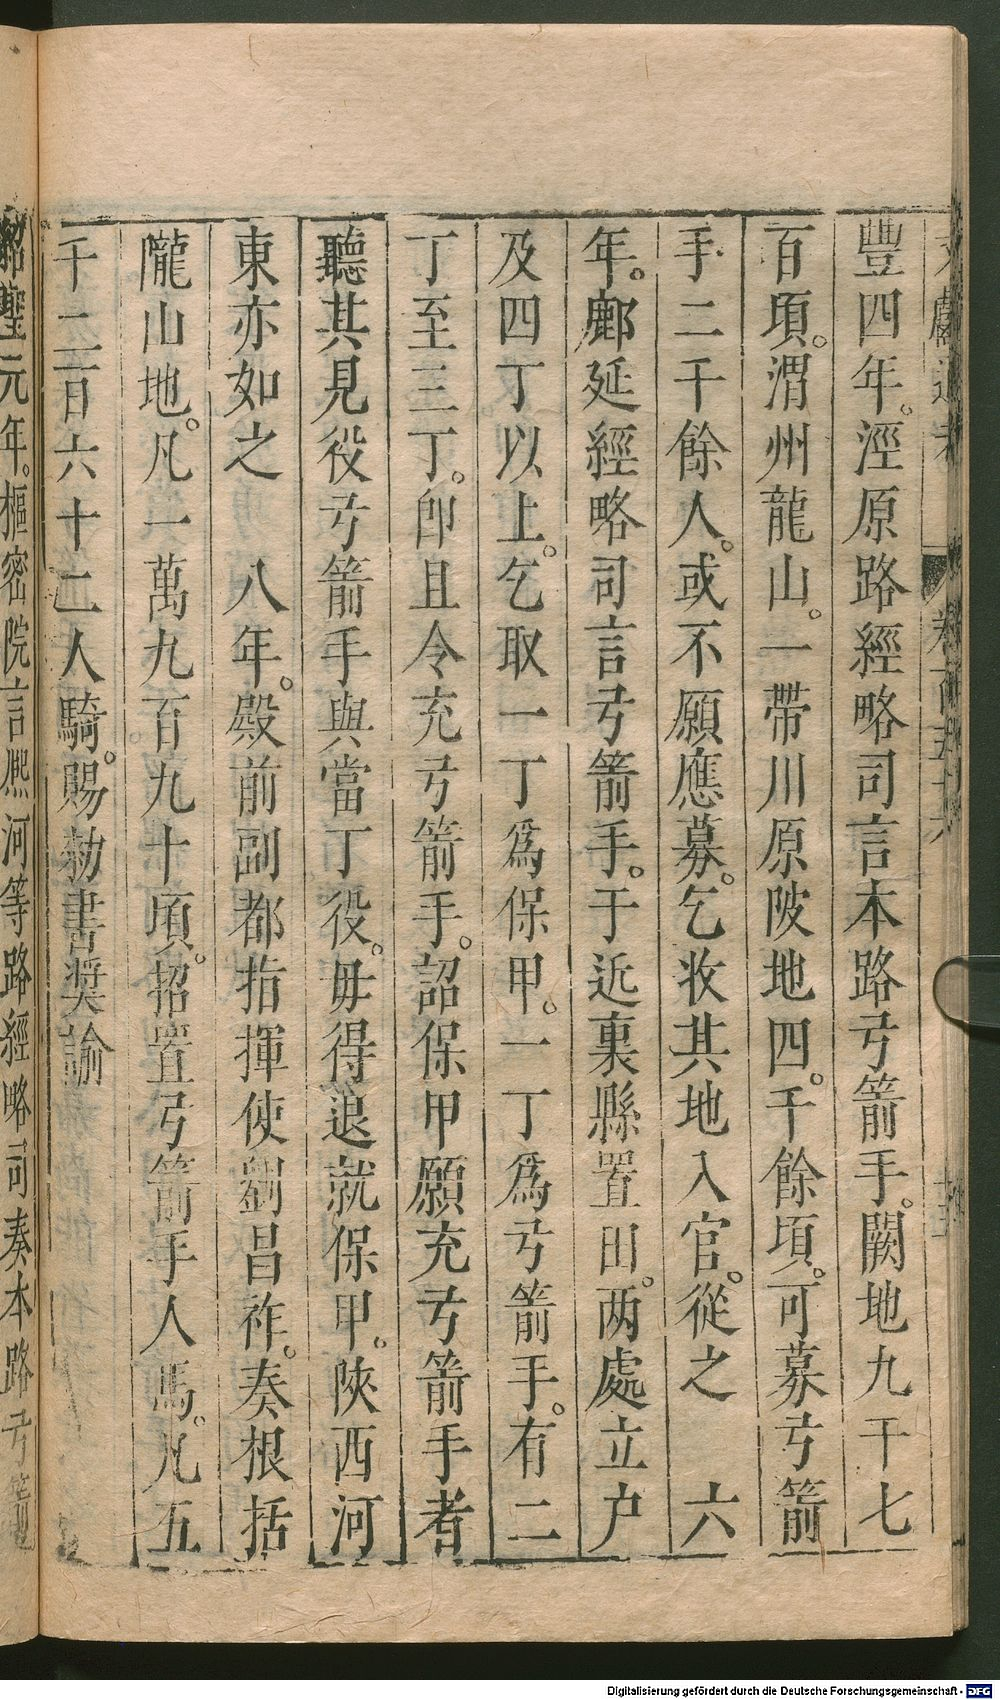 文獻通考 卷百五十六
豐四年。涇原路經略司言本路弓箭手。闕地九千七
百頃。渭州龍山。一帶川原陂地四。千餘頃。可募弓箭
手二千餘人。或不願應募。乞收其地入官。從之 六
年。鄜延經略司言弓箭手。于近裏縣置田。两處立户
及四丁以上。乞取一丁爲保甲。一丁爲弓箭手。有二
丁至三丁。卽且令充弓箭手。詔保甲願充弓箭手者
聽其見役弓箭手與當丁役。毋得退就保甲。陝西河
東亦如之 八年。殿前副都指揮使劉昌祚。奏根括
隴山地。凡一萬九百九十頃。招置弓箭手人馬。凡五
千二百六十二人騎。賜勑書奬諭
紹聖元年。樞密院言熈河等路經略司奏本路弓箭
Digitalisierung gefördert durch die Deutsche Forschungsgemeinschaft - DFG